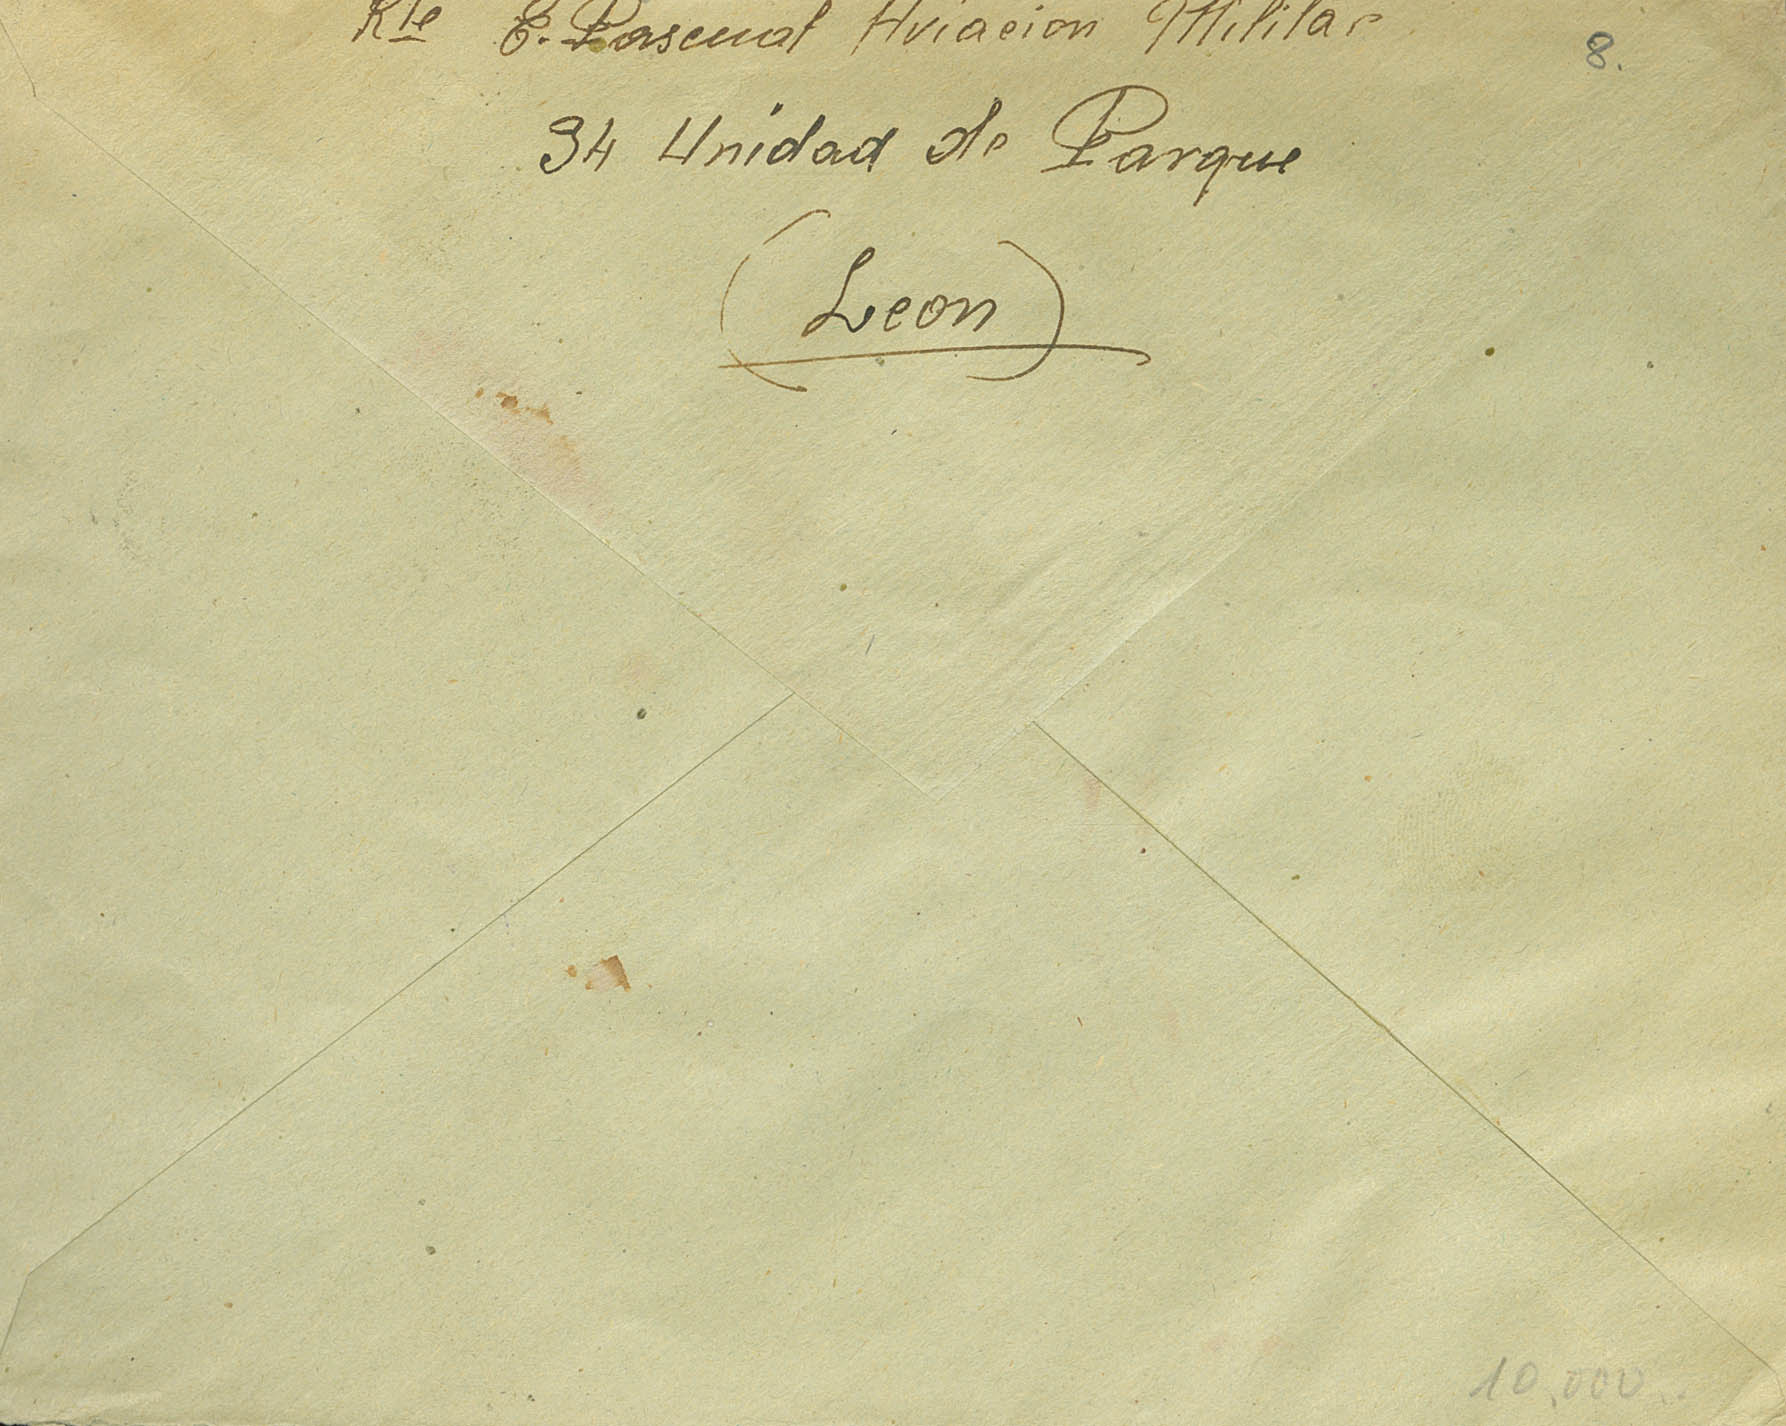 Rte E. Pascual Aviacion Militar
8.
34 Unidad de Parque
(Leon)
10.000